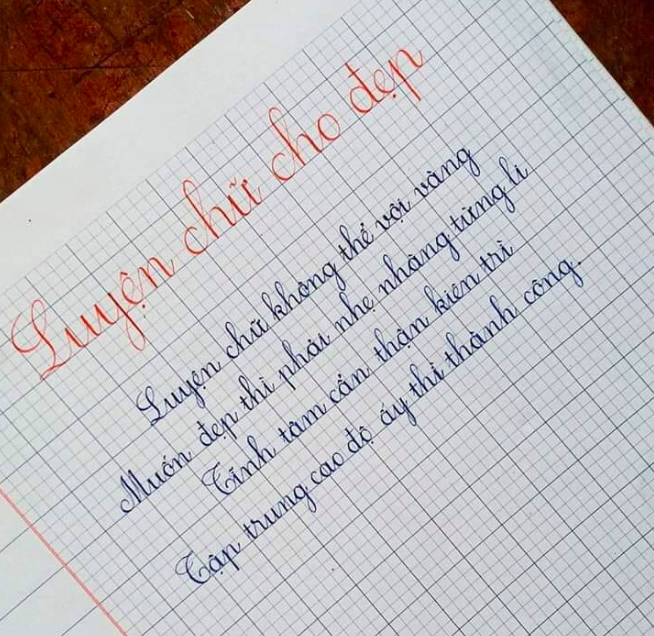 Luyện chữ cho đẹp
Luyện chữ không thể vội vàng
Muốn đẹp thì phải nhẹ nhàng từng li
Tĩnh tâm cẩn thận kiên trì
Tập trung cao độ ấy thì thành công.